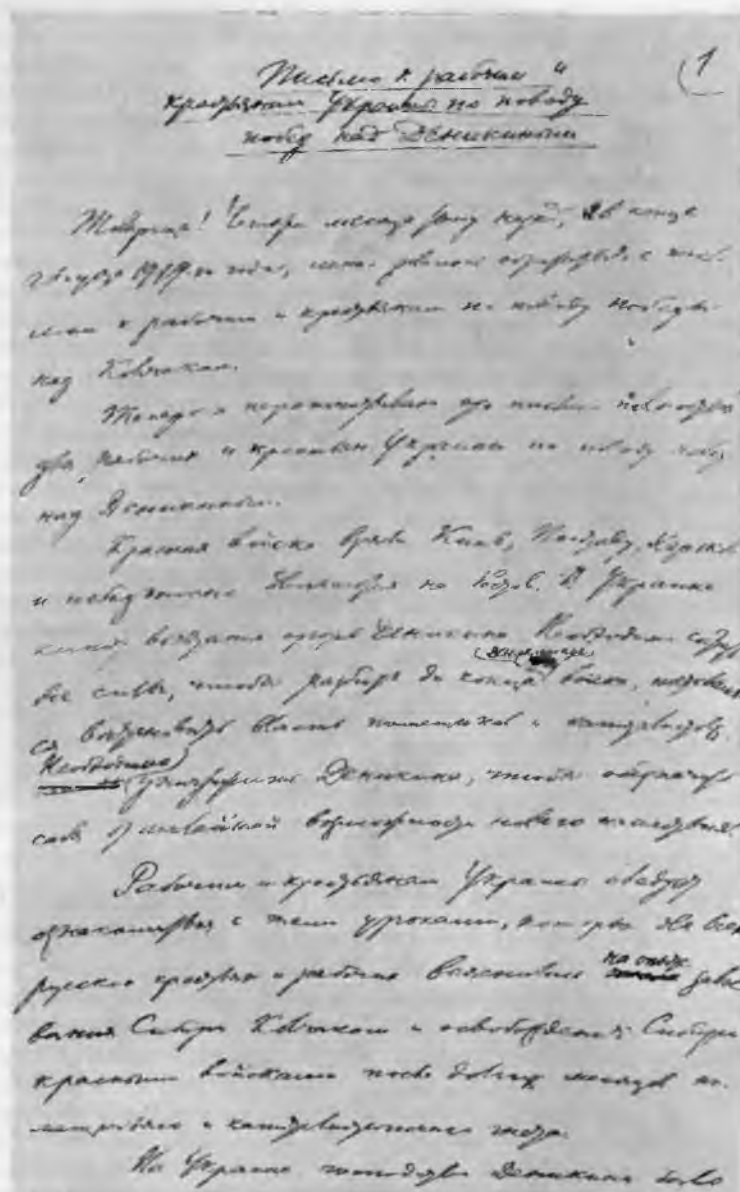 (1
Письмо к рабочим и
крестьянам Украины по поводу
побед над Деникиным
Товарищи! Четыре месяца тому назад, в конце
августа 1919-го года, мне довелось обратиться с пись-
мом к рабочим и крестьянам по поводу победы
над Колчаком.
Теперь я перепечатываю это письмо полностью
для рабочих и крестьян Украины по поводу побед
над Деникиным.
Красные войска взяли Киев, Полтаву, Харьков
и победоносно двигаются на Ростов. В Украине
кипит восстание против Деникина. Необходимо собрать
все силы, чтобы разбить до конца деникинские войска, пытавшие-
ся восстановить власть помещиков и капиталистов.
Необходимо уничтожить Деникина, чтобы обеспечить
себя от малейшей возможности нового нашествия.
Рабочим и крестьянам Украины следует
ознакомиться с теми уроками, которые для всех
русских крестьян и рабочих выяснились на опыте завое-
вания Сибири Колчаком и освобождения Сибири
красными войсками после долгих месяцев по-
мещичьего и капиталистического гнета.
На Украине господство Деникина было